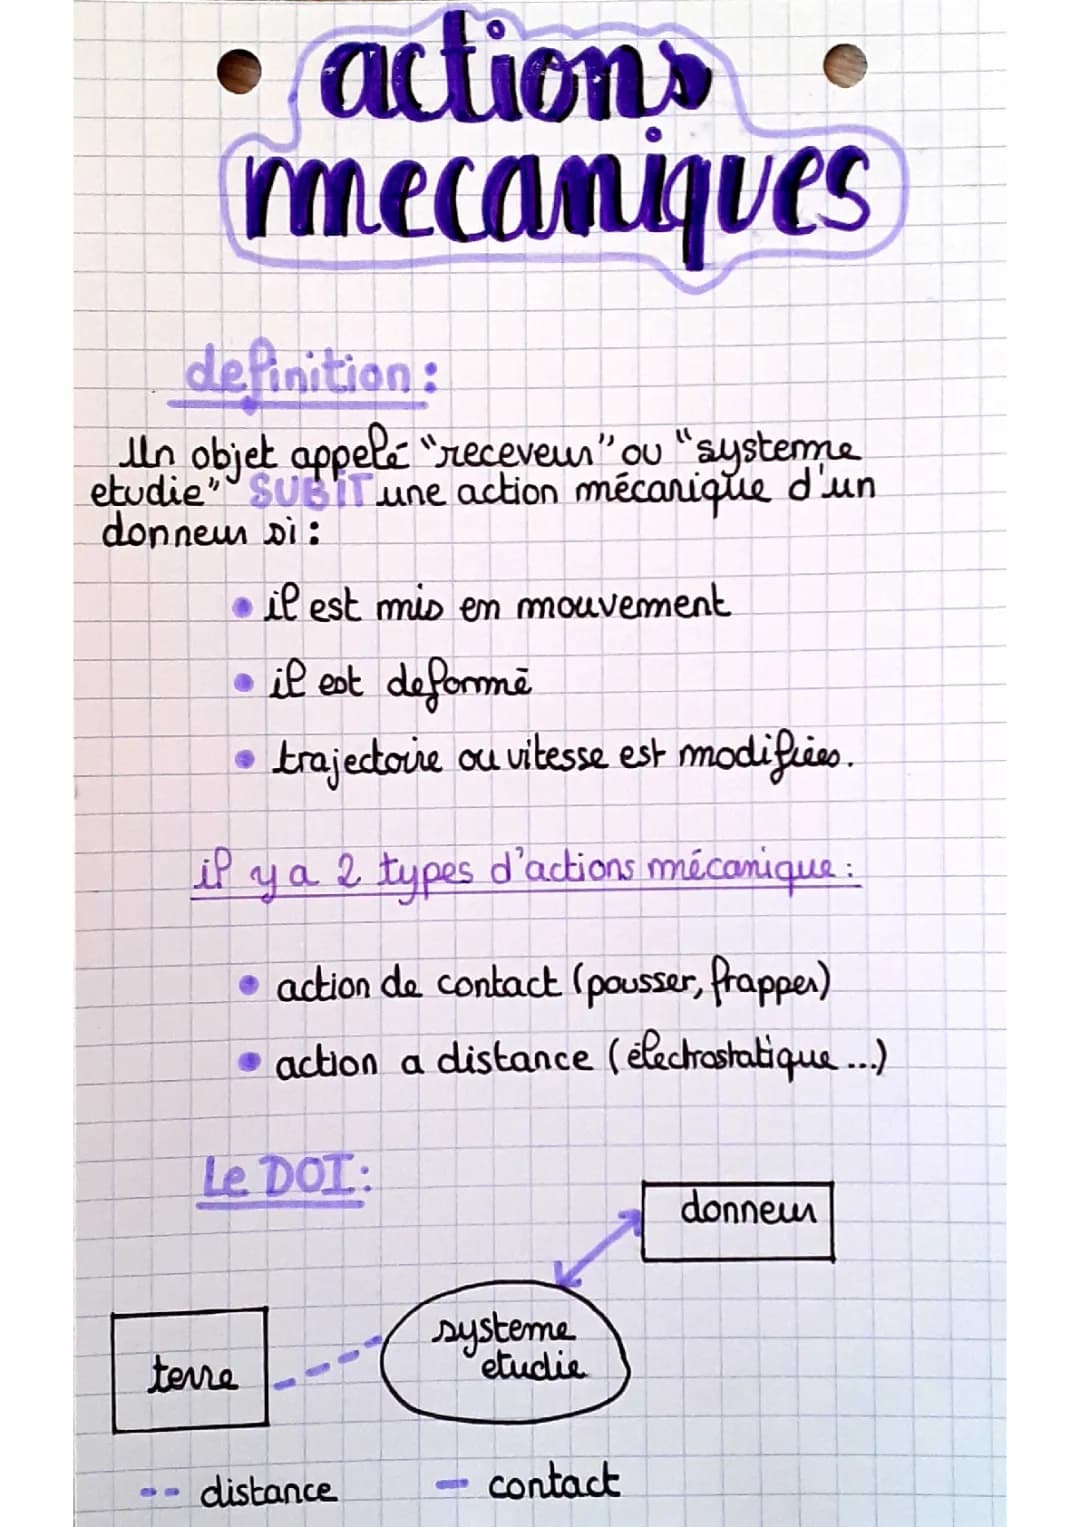 actions
mecaniques
definition :
Un objet appelé "receveur" ou "systeme
etudie" SUBIT une action mécanique d'un
donneur si :
il est mis en mouvement
il est deformé
trajectoire ou vitesse est modifiées.
il y a 2 types d'actions mécanique :
action de contact (pousser, frapper)
action a distance (électrostatique ...)
Le DOI :
donneur
systeme
etudie
terre
-- distance
- contact